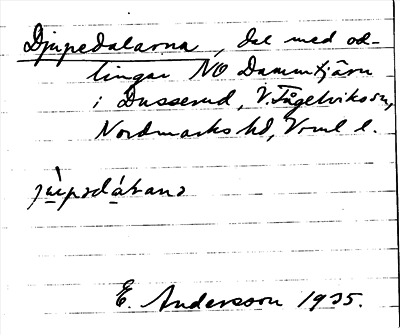 Djupedalarna, del med od-
lingar NO Dammtjärn
i Dusserud, V. Fågelviks sn,
Nordmarks hd, Vrml l.
E. Andersson 1935.